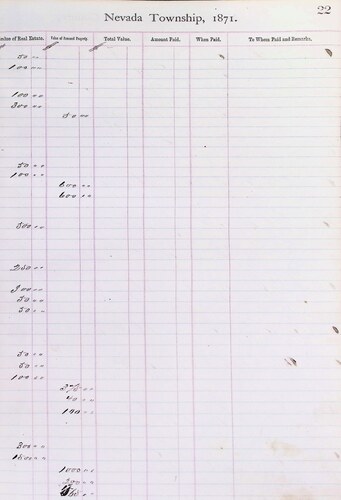 22
Nevada Township, 1871.
Value of Real Estate. Value of Personal Property. Total Value. Amount Paid. When Paid. To Whom Paid and Remarks.
50 --
100 --
100 --
300 --
50 --
50 --
100 --
600 --
600 --
500 --
250 --
300 --
50 --
50 --
50 --
50 --
100 --
40 --
100 --
300 --
1000 --
300 --